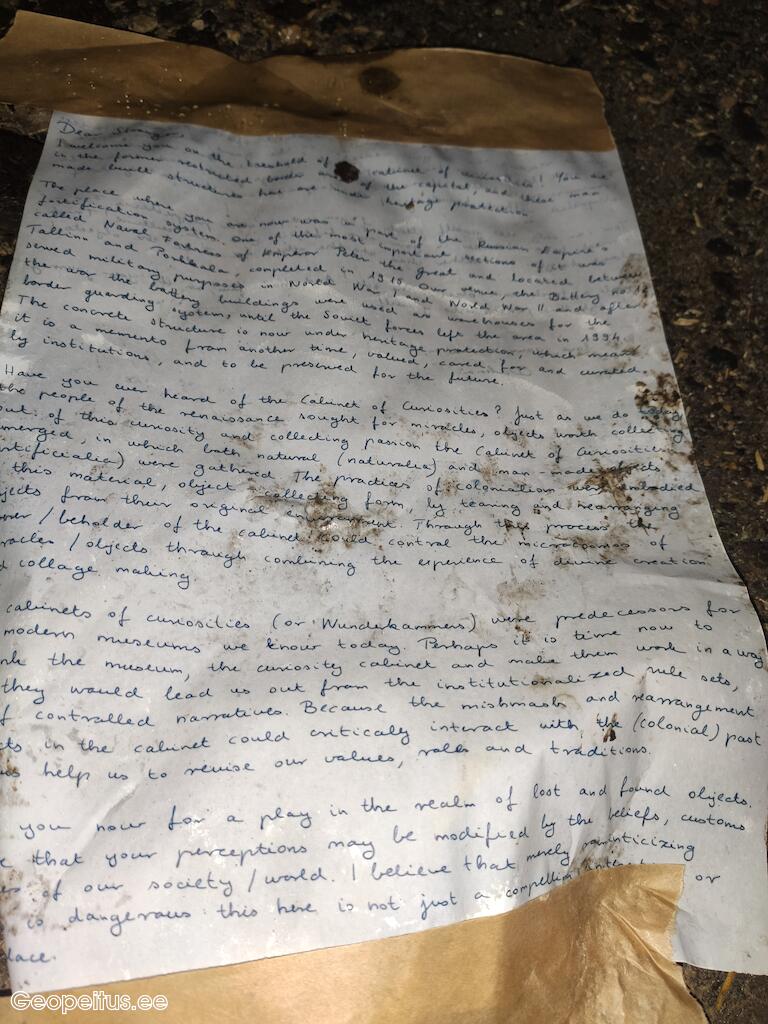 Dear Stranger!
I welcome you on the treshold of cabinet of curiosities! You are
in the former restricted border of the capital, and these man
made built structures here are under heritage protection.
The place where you are now was a part of the Russian Empire's
fortification system. One of the most important sections of it was
called Naval Fortress of Emperor Peter the Great and located between
Tallinn and Porkkala, completed in 1915. Our venue, the Battery no
served military purposes in World War I and World War II and after
the war the battery buildings were used as warehouses for the
border guarding system, until the Soviet forces left the area in 1994.
The concrete structure is now under heritage protection, which means
it is a memento from another time, valued, cared for and curated
by institutions, and to be preserved for the future.
Have you ever heard of the Cabinet of Curiosities? Just as we do today
the people of the renaissance sought for miracles, objects worth collecting
out of this curiosity and collecting passion the Cabinet of Curiosities
merged, in which both natural (naturalia) and man-made objects
rtificialia) were gathered. The practices of colonialism were embodied
this material, object collecting form, by tearing and rearranging
jects from their original environment. Through this process the
ner / beholder of the cabinet could control the microcosmos of
racles / objects through combining the experience of divine creation
d collage making.
cabinets of curiosities (or Wunderkammers) were predecessors for
modern museums we know today. Perhaps it is time now to
nk the museum, the curiosity cabinet and make them work in a way
they would lead us out from the institutionalized rule sets,
f controlled narratives. Because the mishmash and rearrangement
cts in the cabinet could critically interact with the (colonial) past
us help us to revise our values, roles and traditions.
you now for a play in the realm of lost and found objects.
e that your perceptions may be modified by the beliefs, customs
es of our society / world. I believe that merely romanticizing
is dangerous: this here is not just a or
lace.
Geopeitus.ee